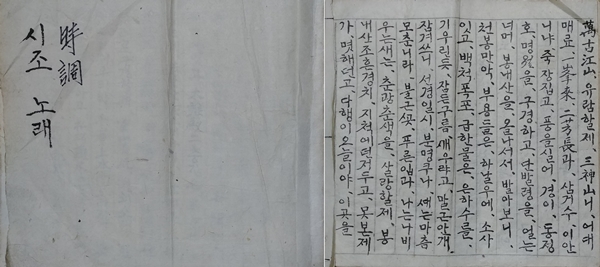 時調
시조 노래
萬古江山, 유람할제, 三神山니, 어대
매료, 一峯來, 二芳長과, 삼거수 이안
니냐, 죽장집고, 풍을실어, 경이, 동정
호, 명월을, 구경하고, 단발령을, 얼는
너머, 봉내산을, 올나서서, 발아보니,
천봉만악, 부용들은, 하날우에, 소사
잇고, 백척폭포, 급한물은, 은하수를,
기우린듯, 잠든구름, 깨우랴고, 말근안개
잠겨쓰니, 선경일시, 분명쿠나, 때는마츰
모춘니라, 불근꽃, 푸른잎과, 나는나비
우는새는, 춘광춘색을, 사랑할제, 봉
내산조흔경치, 지척에던저두고, 못본제
가, 몃해던고, 다행이오늘이야, 이곳을